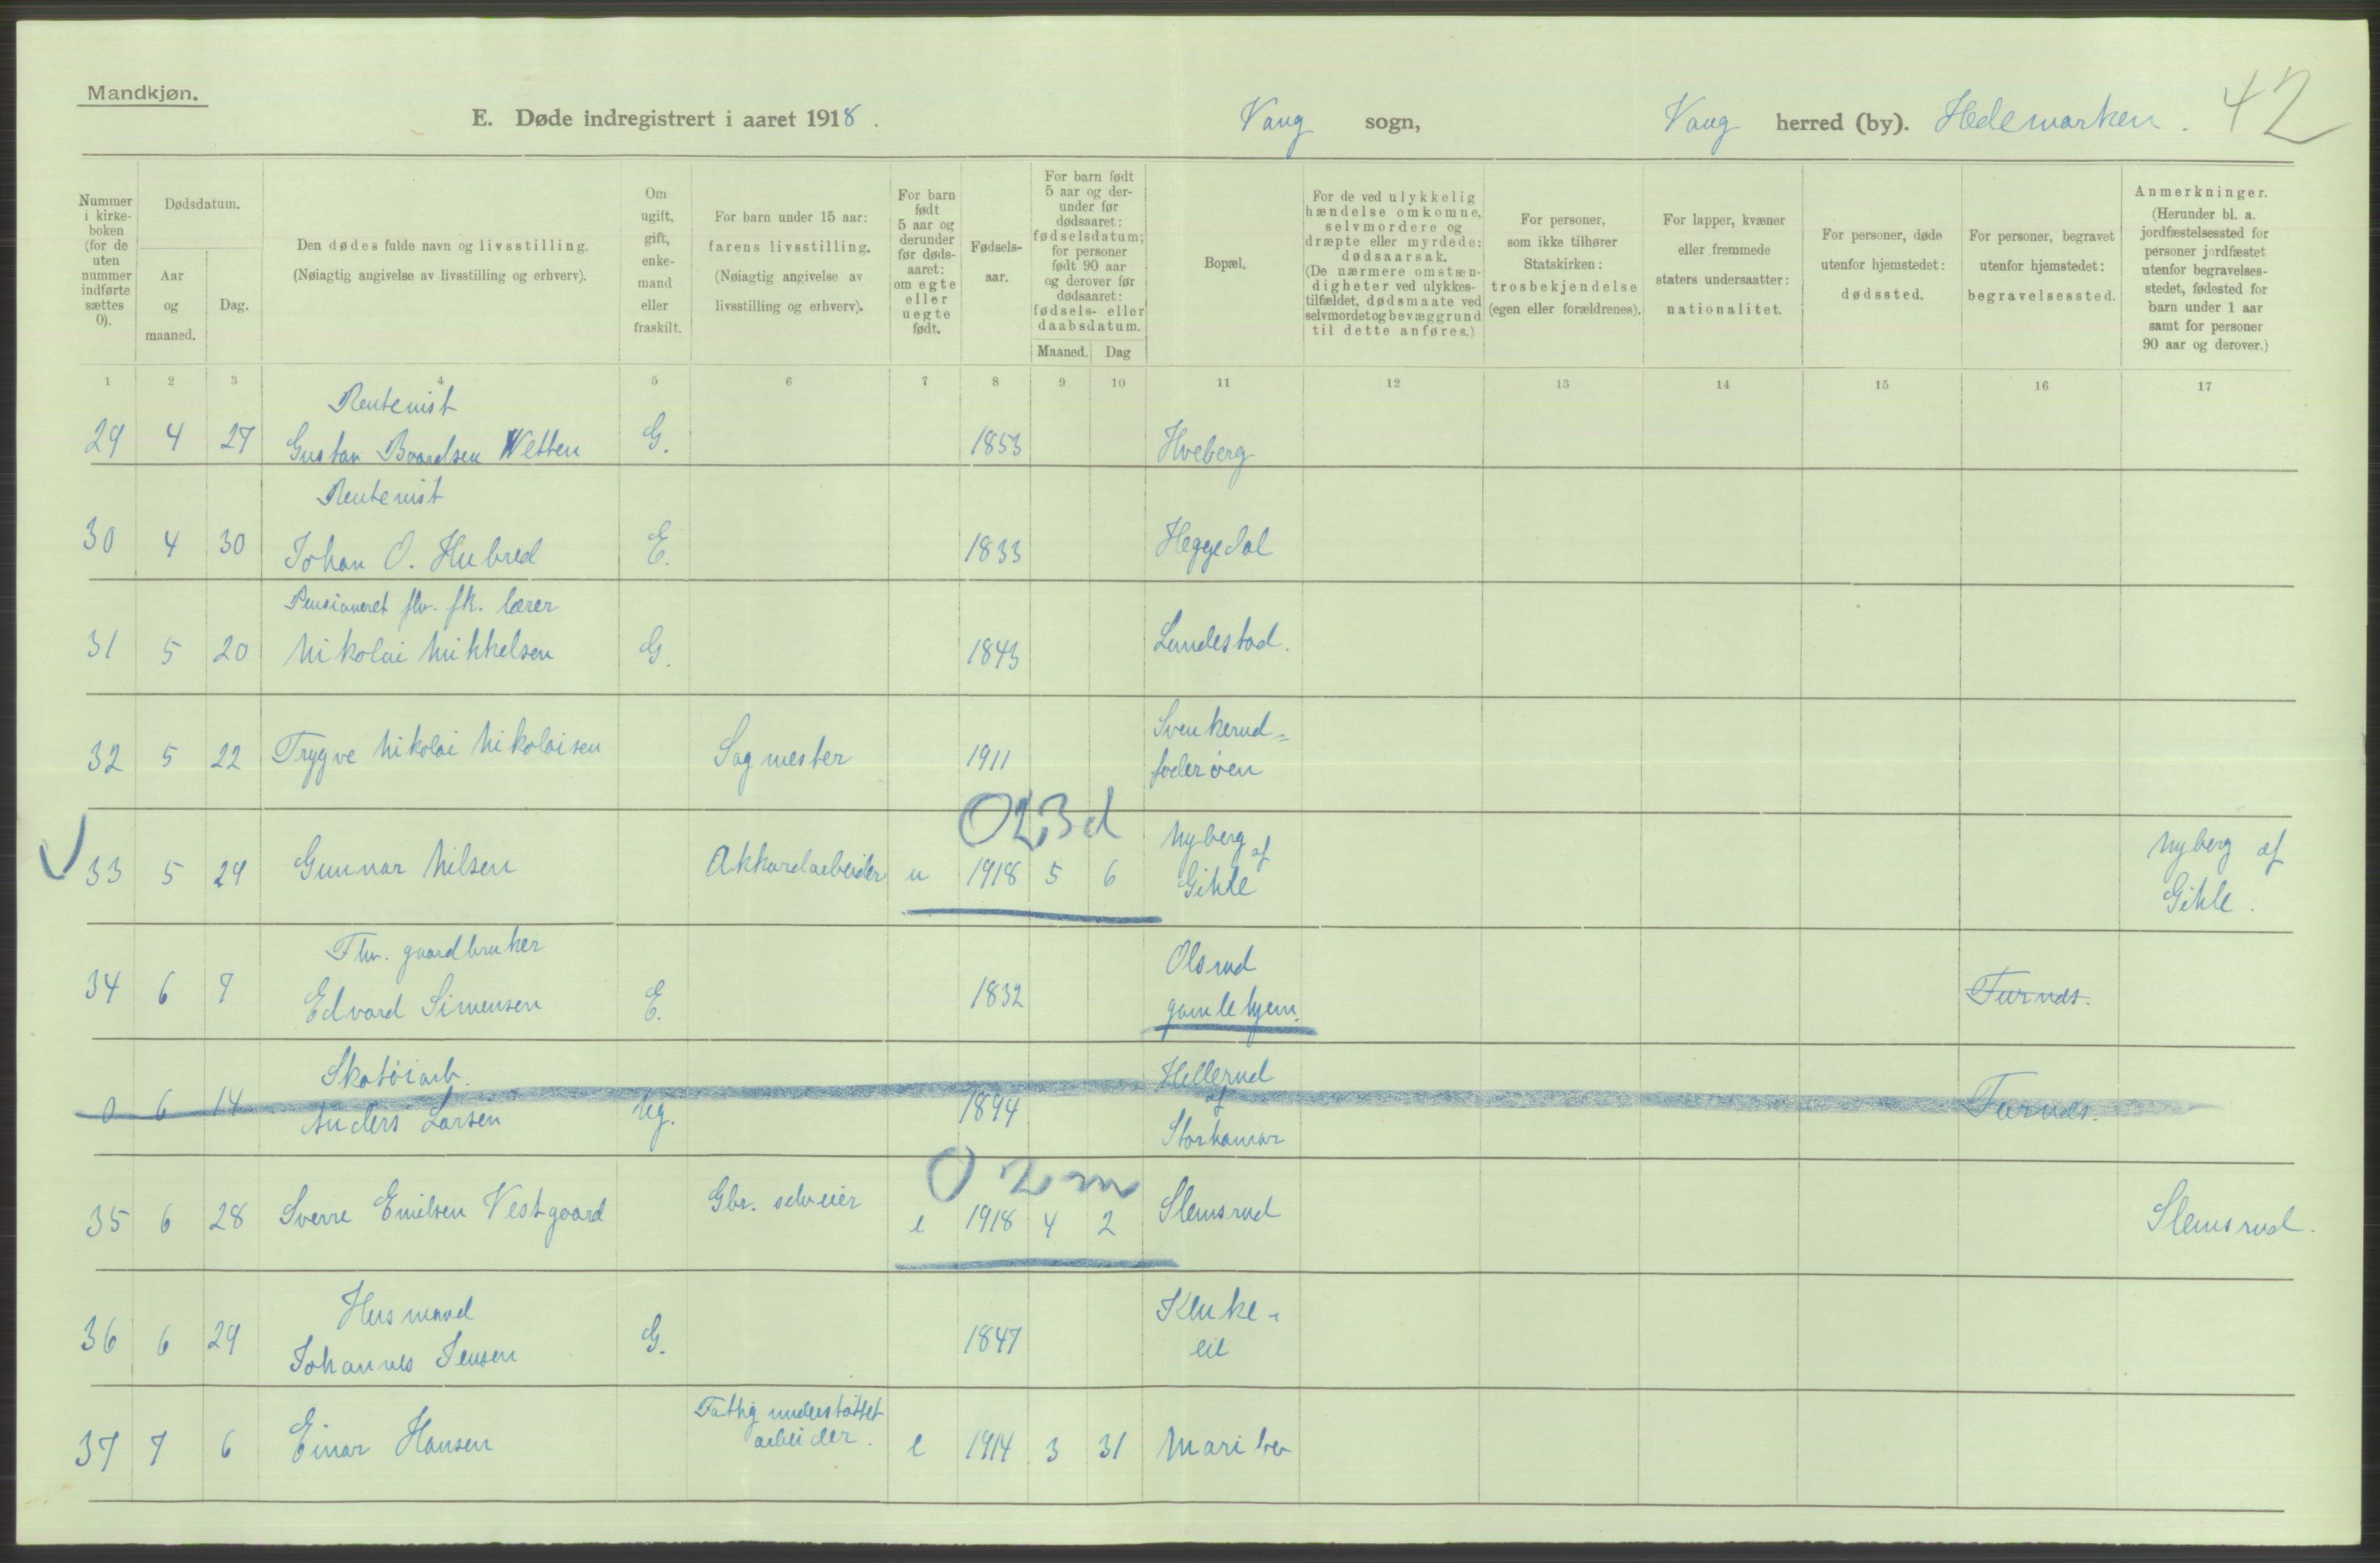 Mandkjøn.
E. Døde indregistrert i aaret 1918. Vang sogn, Vang herred (by). Hedemarken. 42
Nummer i kirke-boken (for de uten nummer indførte sættes 0).
Dødsdatum.
Aar og maaned.
Dag.
Den dødes fulde navn og livsstilling.
(Nøiagtig angivelse av livsstilling og erhverv).
Om ugift, gift, enke-mand eller fraskilt.
For barn under 15 aar:
farens livsstilling.
(Nøiagtig angivelse av livsstilling og erhverv).
For barn født 5 aar og derunder før døds-aaret: om egte eller uegte født.
Fødsels-aar.
For barn født 5 aar og der-under før dødsaaret: fødselsdatum; for personer født 90 aar og derover før dødsaaret: fødsels- eller daabsdatum.
Maaned. Dag
Bopæl.
For de ved ulykkelig hændelse omkomne, selvmordere og dræpte eller myrdede: dødsaarsak.
(De nærmere omstæn-digheter ved ulykkes-tilfældet, dødsmaate ved selvmordet og bevæggrund til dette anføres.)
For personer, som ikke tilhører Statskirken: trosbekjendelse (egen eller forældrenes).
For lapper, kvæner eller fremmede staters undersaatter: nationalitet.
For personer, døde utenfor hjemstedet: dødssted.
For personer, begravet utenfor hjemstedet: begravelsessted.
Anmerkninger.
(Herunder bl. a. jordfæstelsessted for personer jordfæstet utenfor begravelses-stedet, fødested for barn under 1 aar samt for personer 90 aar og derover.)
1 2 3 4 5 6 7 8 9 10 11 12 13 14 15 16 17
Rentenist
29 4 27 Gustav Baardsen Wetten G. 1853 Hveberg
Rentenist
30 4 30 Johan O. Hubred E. 1833 Heggedal
Pensioneret flv. fk. lærer
31 5 20 Nikolai Mikkelsen G. 1843 Lundestad.
32 5 22 Trygve Nikolai Nikolaisen Sagmester 1911 Svenkerud=
foderøen
023d
33 5 29 Gunnar Nilsen Akkordarbeider u 1918 5 6 Nyberg af
Gihle
Nyberg af
Gihle.
Flv. gaardbruker
34 6 7 Edvard Simensen E. 1832 Olsrud
gamlehjem.
Furnes.
Skotøiarb.
0 6 14 Anders Larsen Ug. 1894 Hellerud
af
Storhamar
Furnes.
0 2 m
35 6 28 Sverre Emilsen Vestgaard Gbr. selveier e 1918 4 2 Slemsrud Slemsrud.
Husmand
36 6 29 Johannes Jensen G. 1847 Kluke-
eie
Fattigunderstøttet
arbeider.
37 7 6 Einar Hansen e 1914 3 31 Maribo